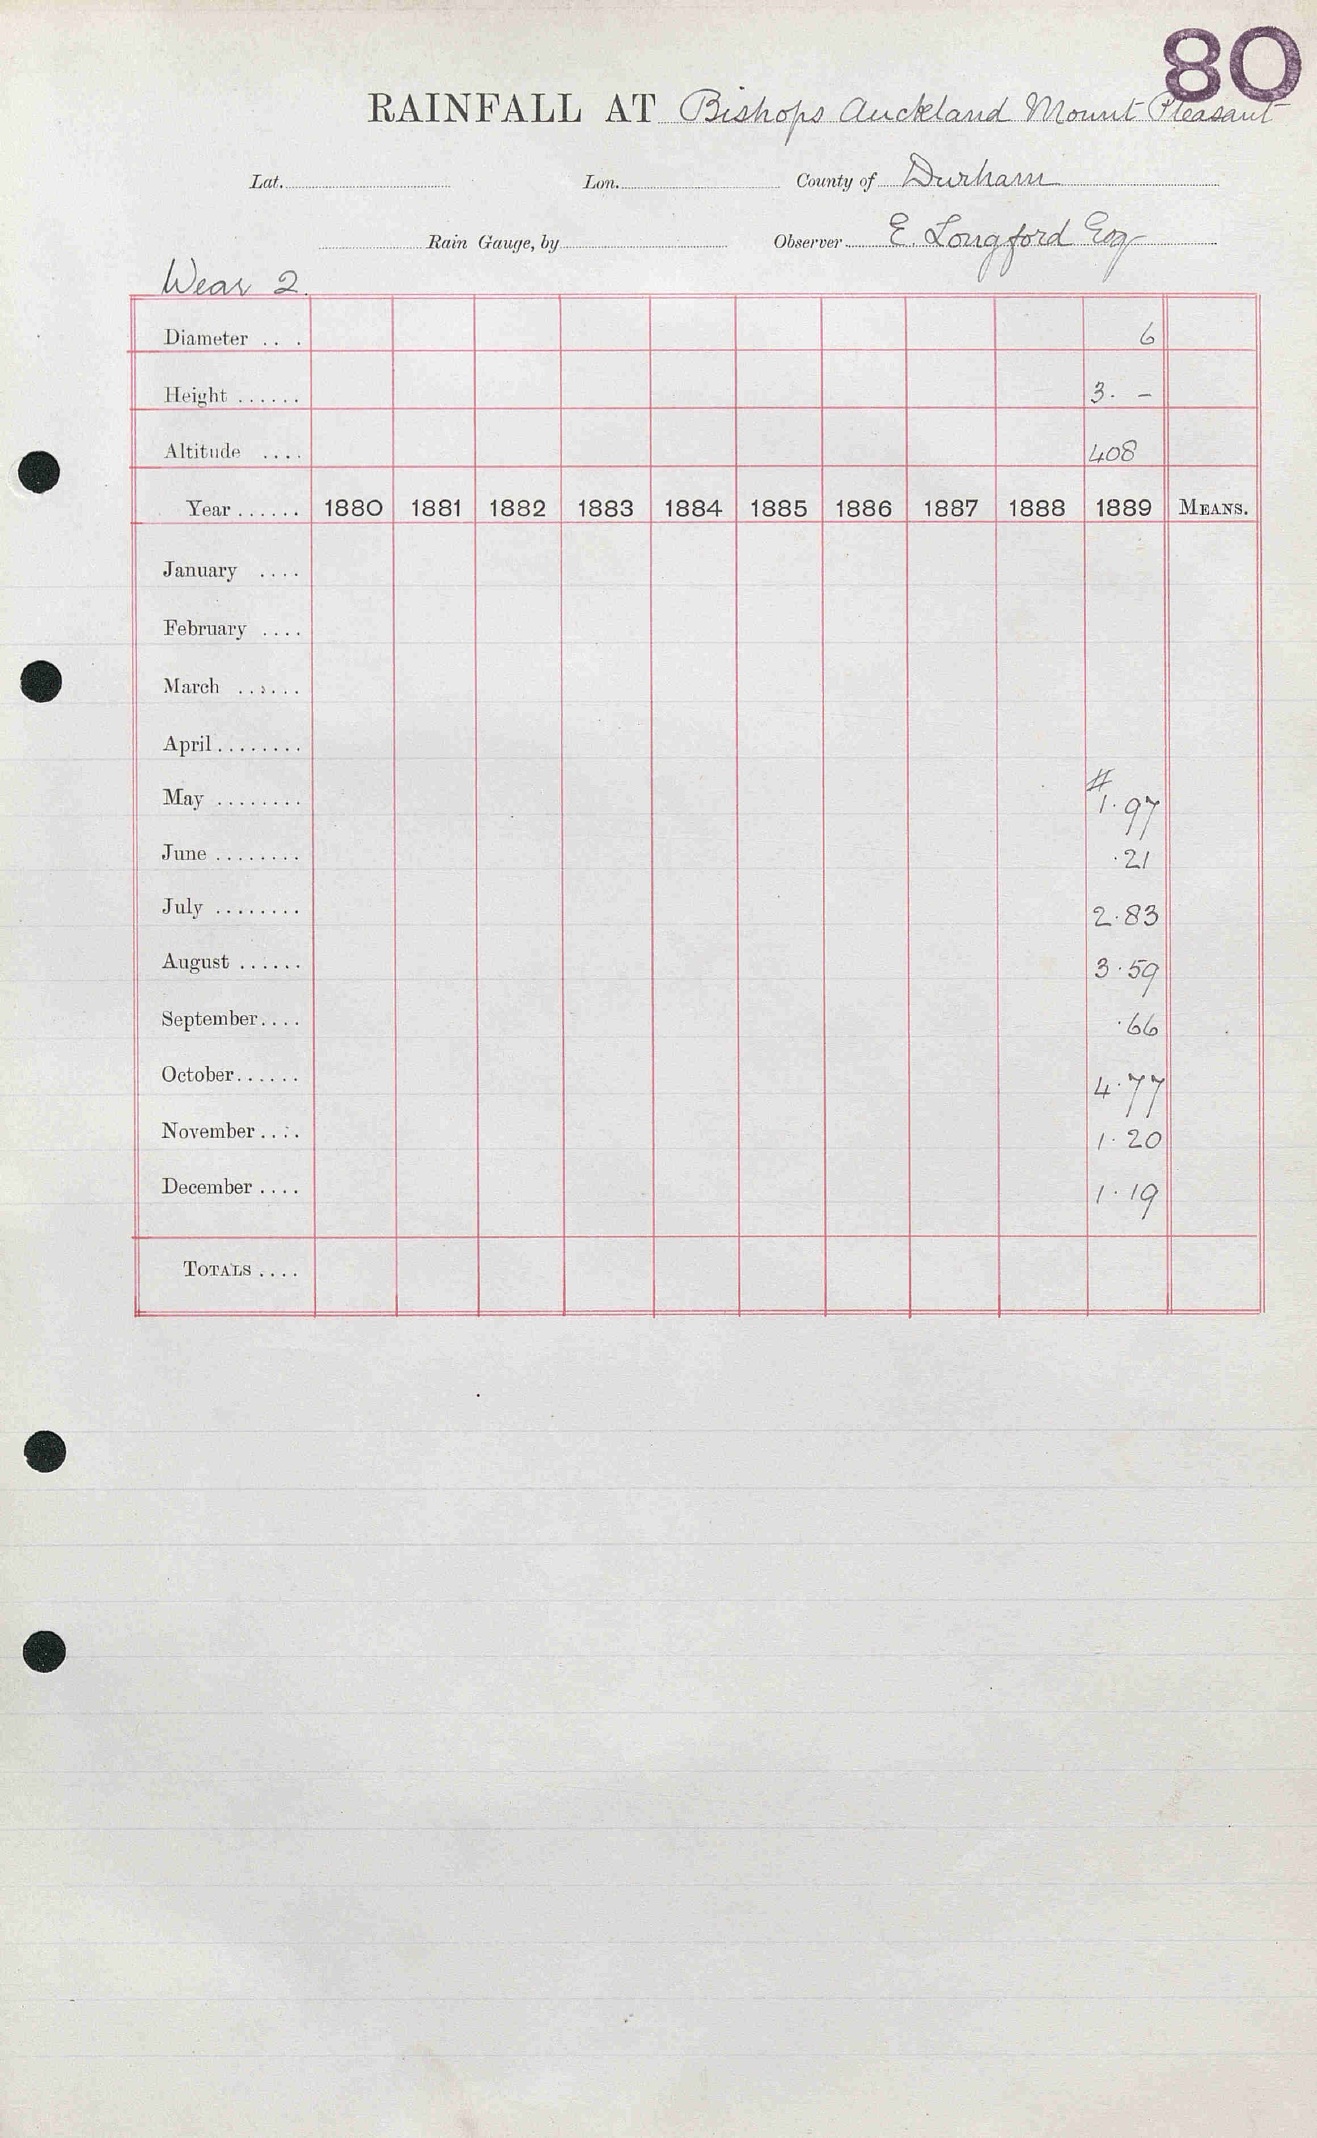 80
RAINFALL AT Bishops Auckland Mount Pleasant
Lat. Lon. County of Durham
Rain Gauge, by Observer E. Longford Esq
Wear 2.
Diameter . . . 6
Height ...... 3. –
Altitude .... 408
Year ...... 1880 1881 1882 1883 1884 1885 1886 1887 1888 1889 MEANS.
January ....
February ....
March ......
April ........
#
May ........ 1.97
June ........ .21
July ........ 2.83
August ...... 3.59
September.... .66
October...... 4.77
November.... 1.20
December .... 1.19
TOTALS ....